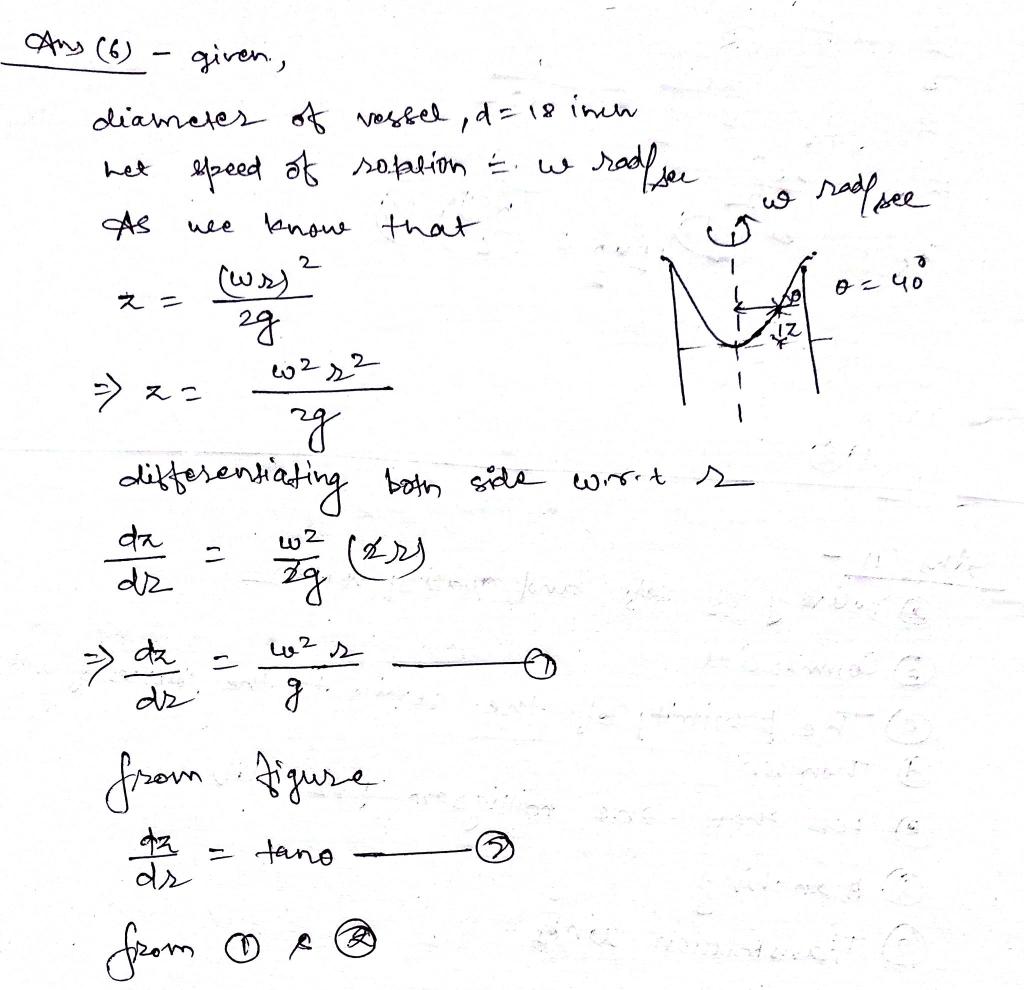 Ans (6) - given,
diameter of vessel, d = 18 inch
Let speed of rotation = ω rad/sec
As we know that
z = (ωr)² / 2g
⇒ z = ω² r² / 2g
ω rad/sec
θ = 40°
θ
z
differentiating both side w.r.t r
dz/dr = ω²/2g (2r)
⇒ dz/dr = ω² r / g —— ①
from figure
dz/dr = tanθ —— ②
from ① & ②